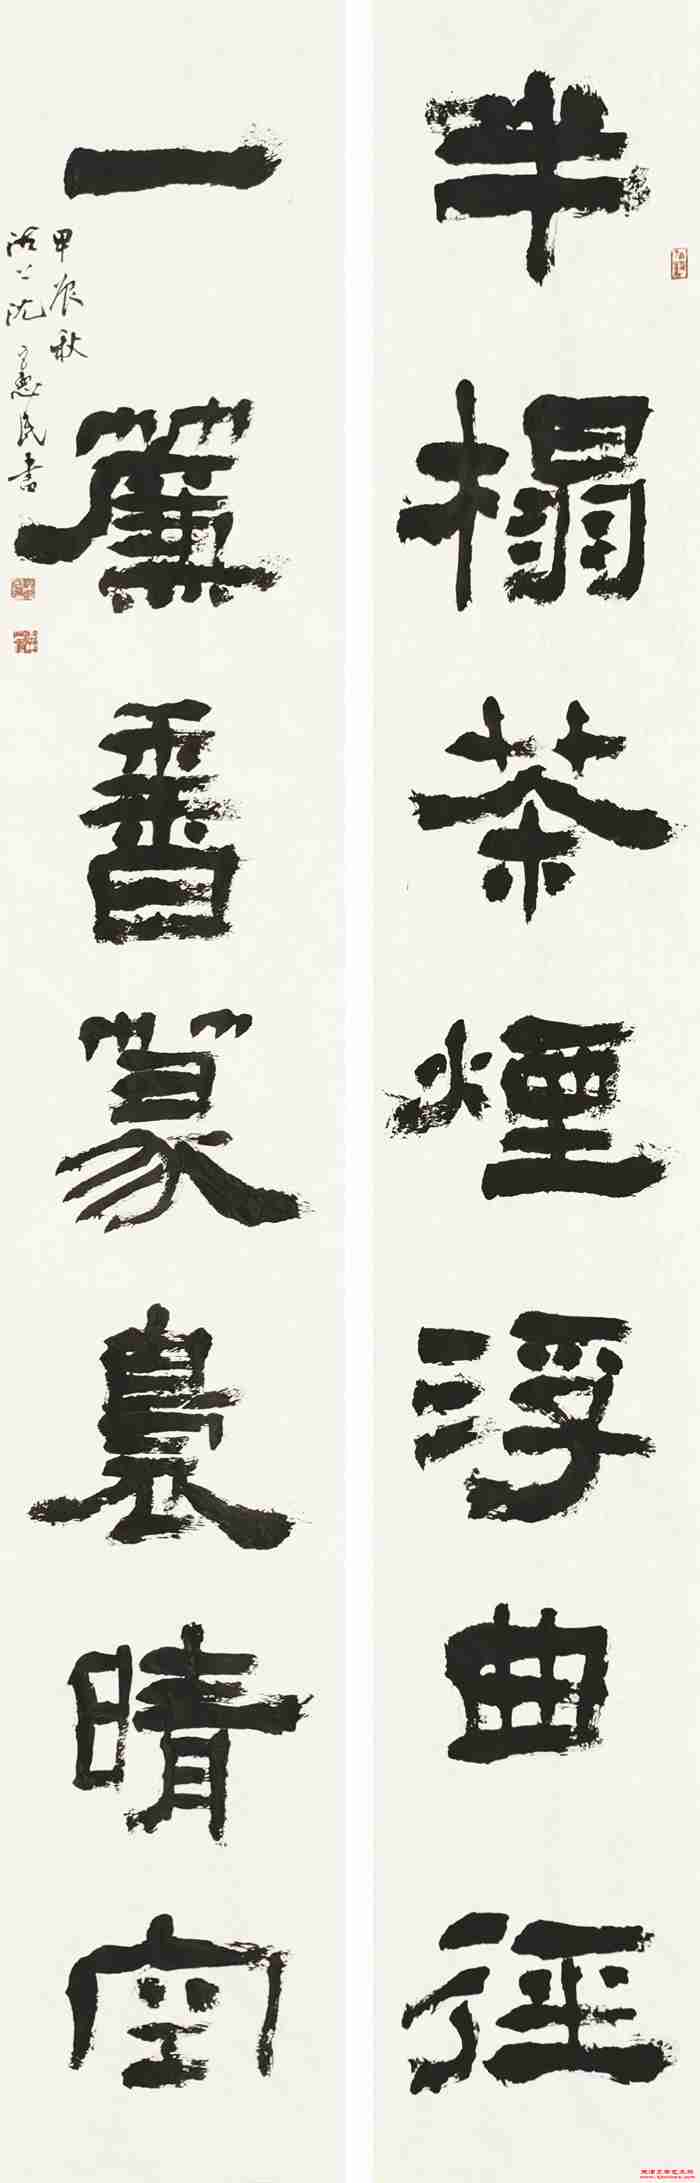 半榻茶煙浮曲徑
一簾香篆裊晴空
甲辰秋
沽上沈惠民書